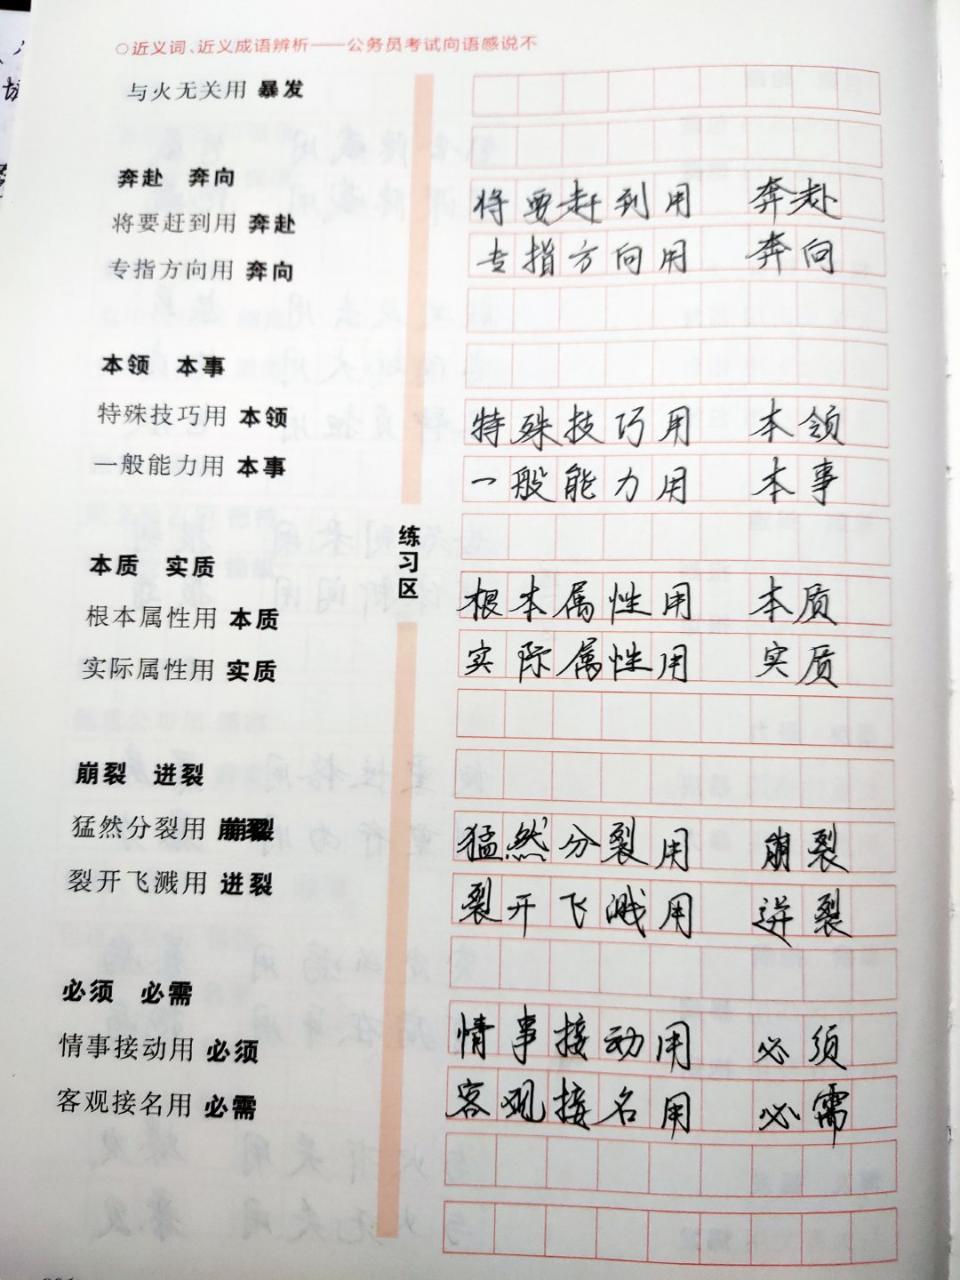 ○近义词、近义成语辨析——公务员考试向语感说不
与火无关用 暴发
奔赴 奔向
将要赶到用 奔赴
将要赶到用 奔赴
专指方向用 奔向
专指方向用 奔向
本领 本事
特殊技巧用 本领
特殊技巧用 本领
一般能力用 本事
一般能力用 本事
练习区
本质 实质
根本属性用 本质
根本属性用 本质
实际属性用 实质
实际属性用 实质
崩裂 迸裂
猛然分裂用 崩裂
猛然分裂用 崩裂
裂开飞溅用 迸裂
裂开飞溅用 迸裂
必须 必需
情事接动用 必须
情事接动用 必须
客观接名用 必需
客观接名用 必需